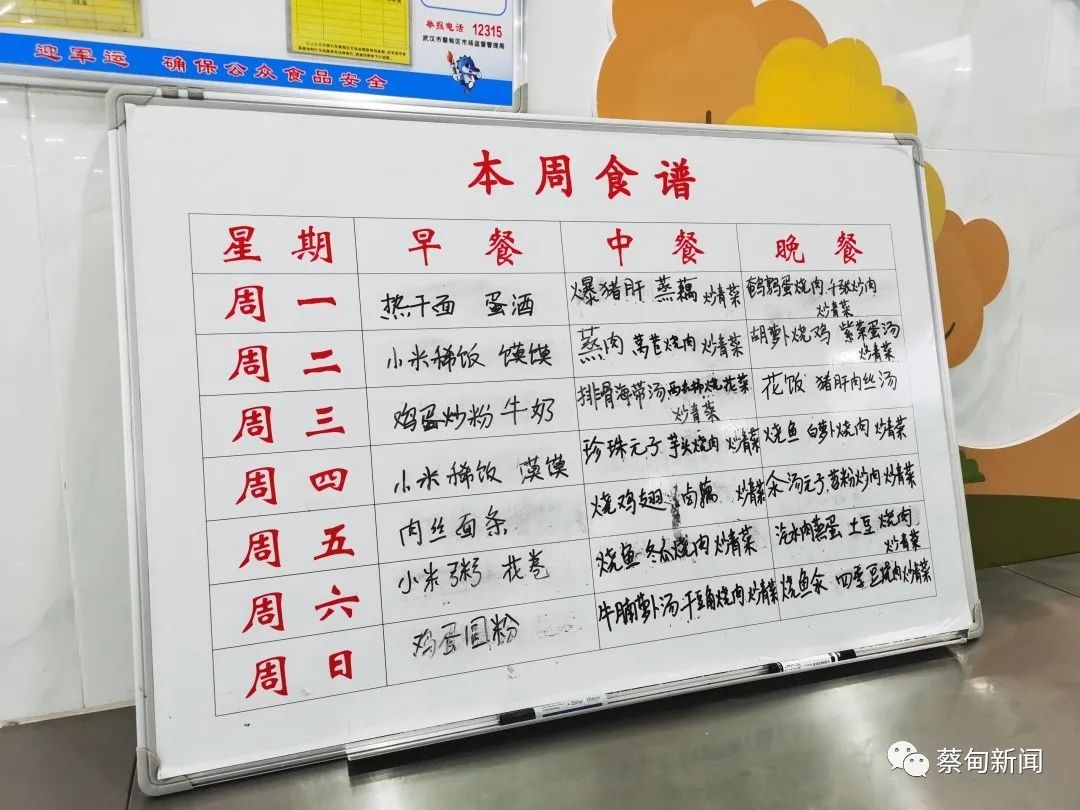 举报电话 12315
武汉市蔡甸区市场监督管理局
迎军运 确保公众食品安全
本周食谱
星期 早餐 中餐 晚餐
周一 热干面 蛋酒 爆猪肝 蒸藕 炒青菜 鹌鹑蛋烧肉 千张炒肉 炒青菜
周二 小米稀饭 馍馍 蒸肉 莴苣烧肉 炒青菜 胡萝卜烧鸡 紫菜蛋汤 炒青菜
周三 鸡蛋炒粉 牛奶 排骨海带汤 西红柿烧花菜 炒青菜 花饭 猪肝肉丝汤
周四 小米稀饭 馍馍 珍珠元子 芋头烧肉 炒青菜 烧鱼 白萝卜烧肉 炒青菜
周五 肉丝面条 烧鸡翅 卤藕 炒青菜 汆汤元子 苕粉炒肉 炒青菜
周六 小米粥 花卷 烧鱼 冬瓜烧肉 炒青菜 汽水肉蒸蛋 土豆烧肉 炒青菜
周日 鸡蛋圆粉 牛腩萝卜汤 干豆角烧肉 炒青菜 烧鱼 四季豆烧肉 炒青菜
蔡甸新闻